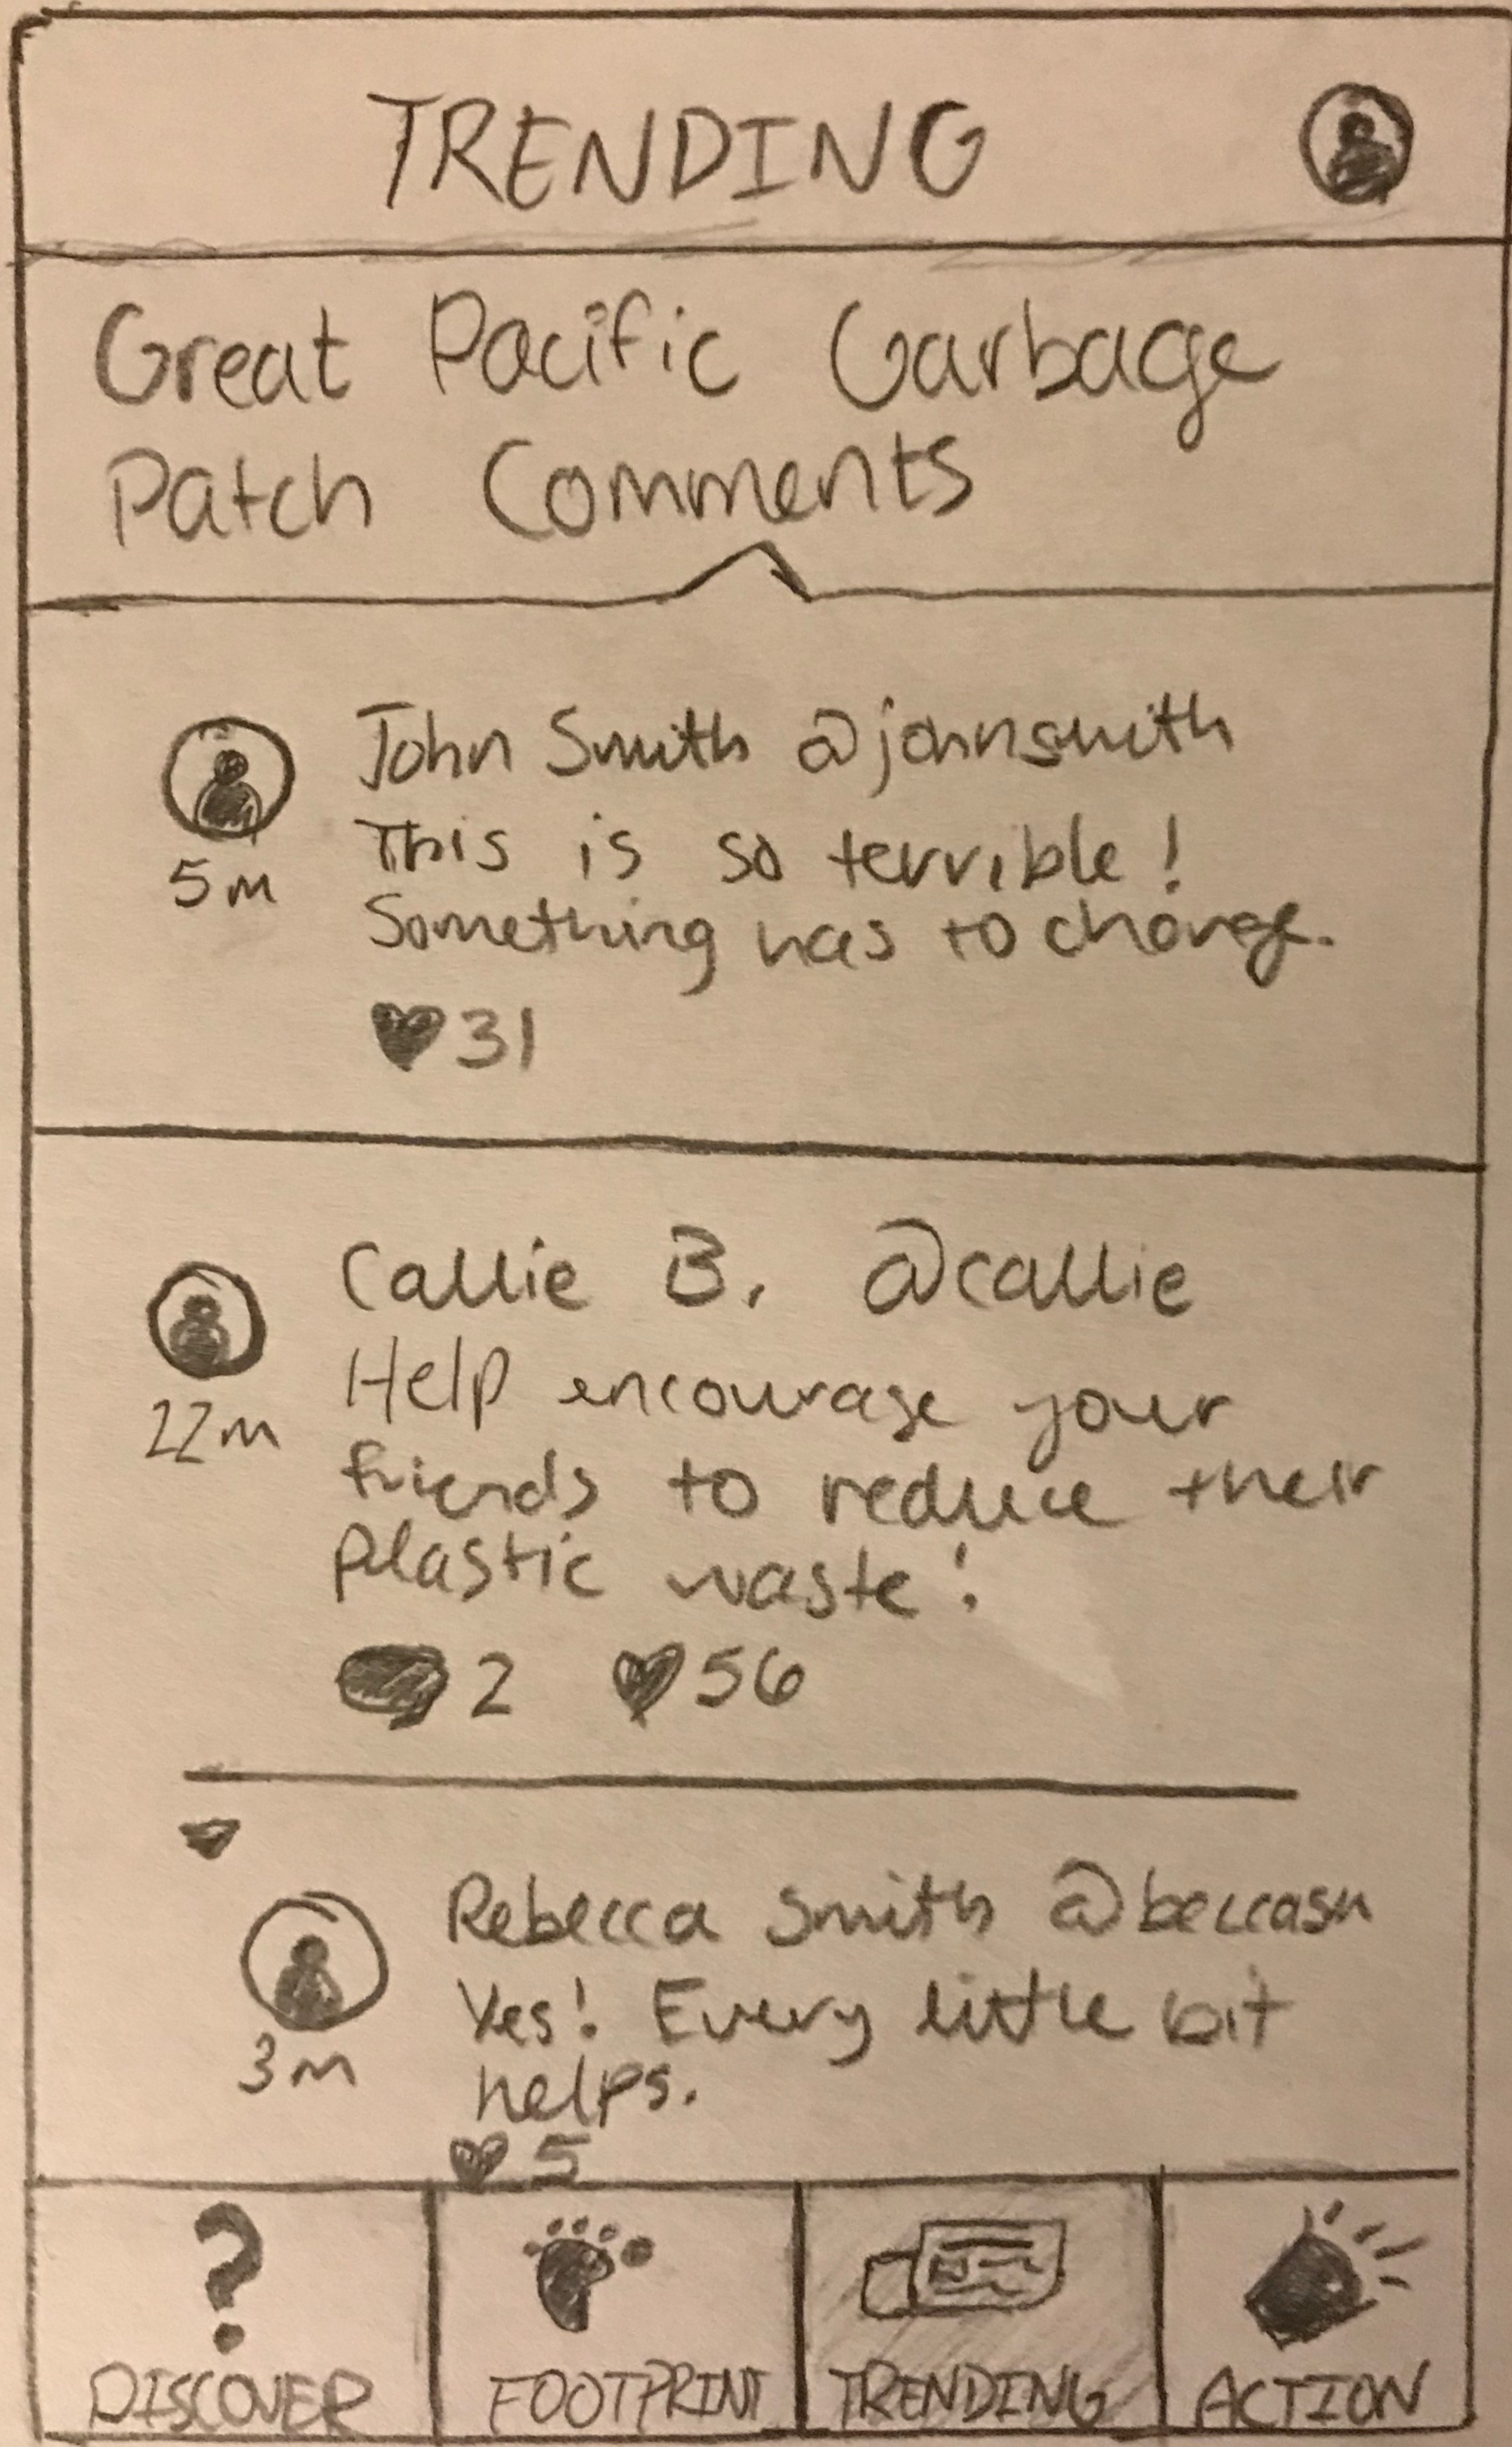 TRENDING
Great Pacific Garbage
Patch Comments
John Smith @johnsmith
5m
This is so terrible!
Something has to change.
31
Callie B. @callie
22m
Help encourage your
friends to reduce their
plastic waste!
2 56
Rebecca Smith @beccasm
3m
Yes! Every little bit
helps.
5
?
DISCOVER FOOTPRINT TRENDING ACTION